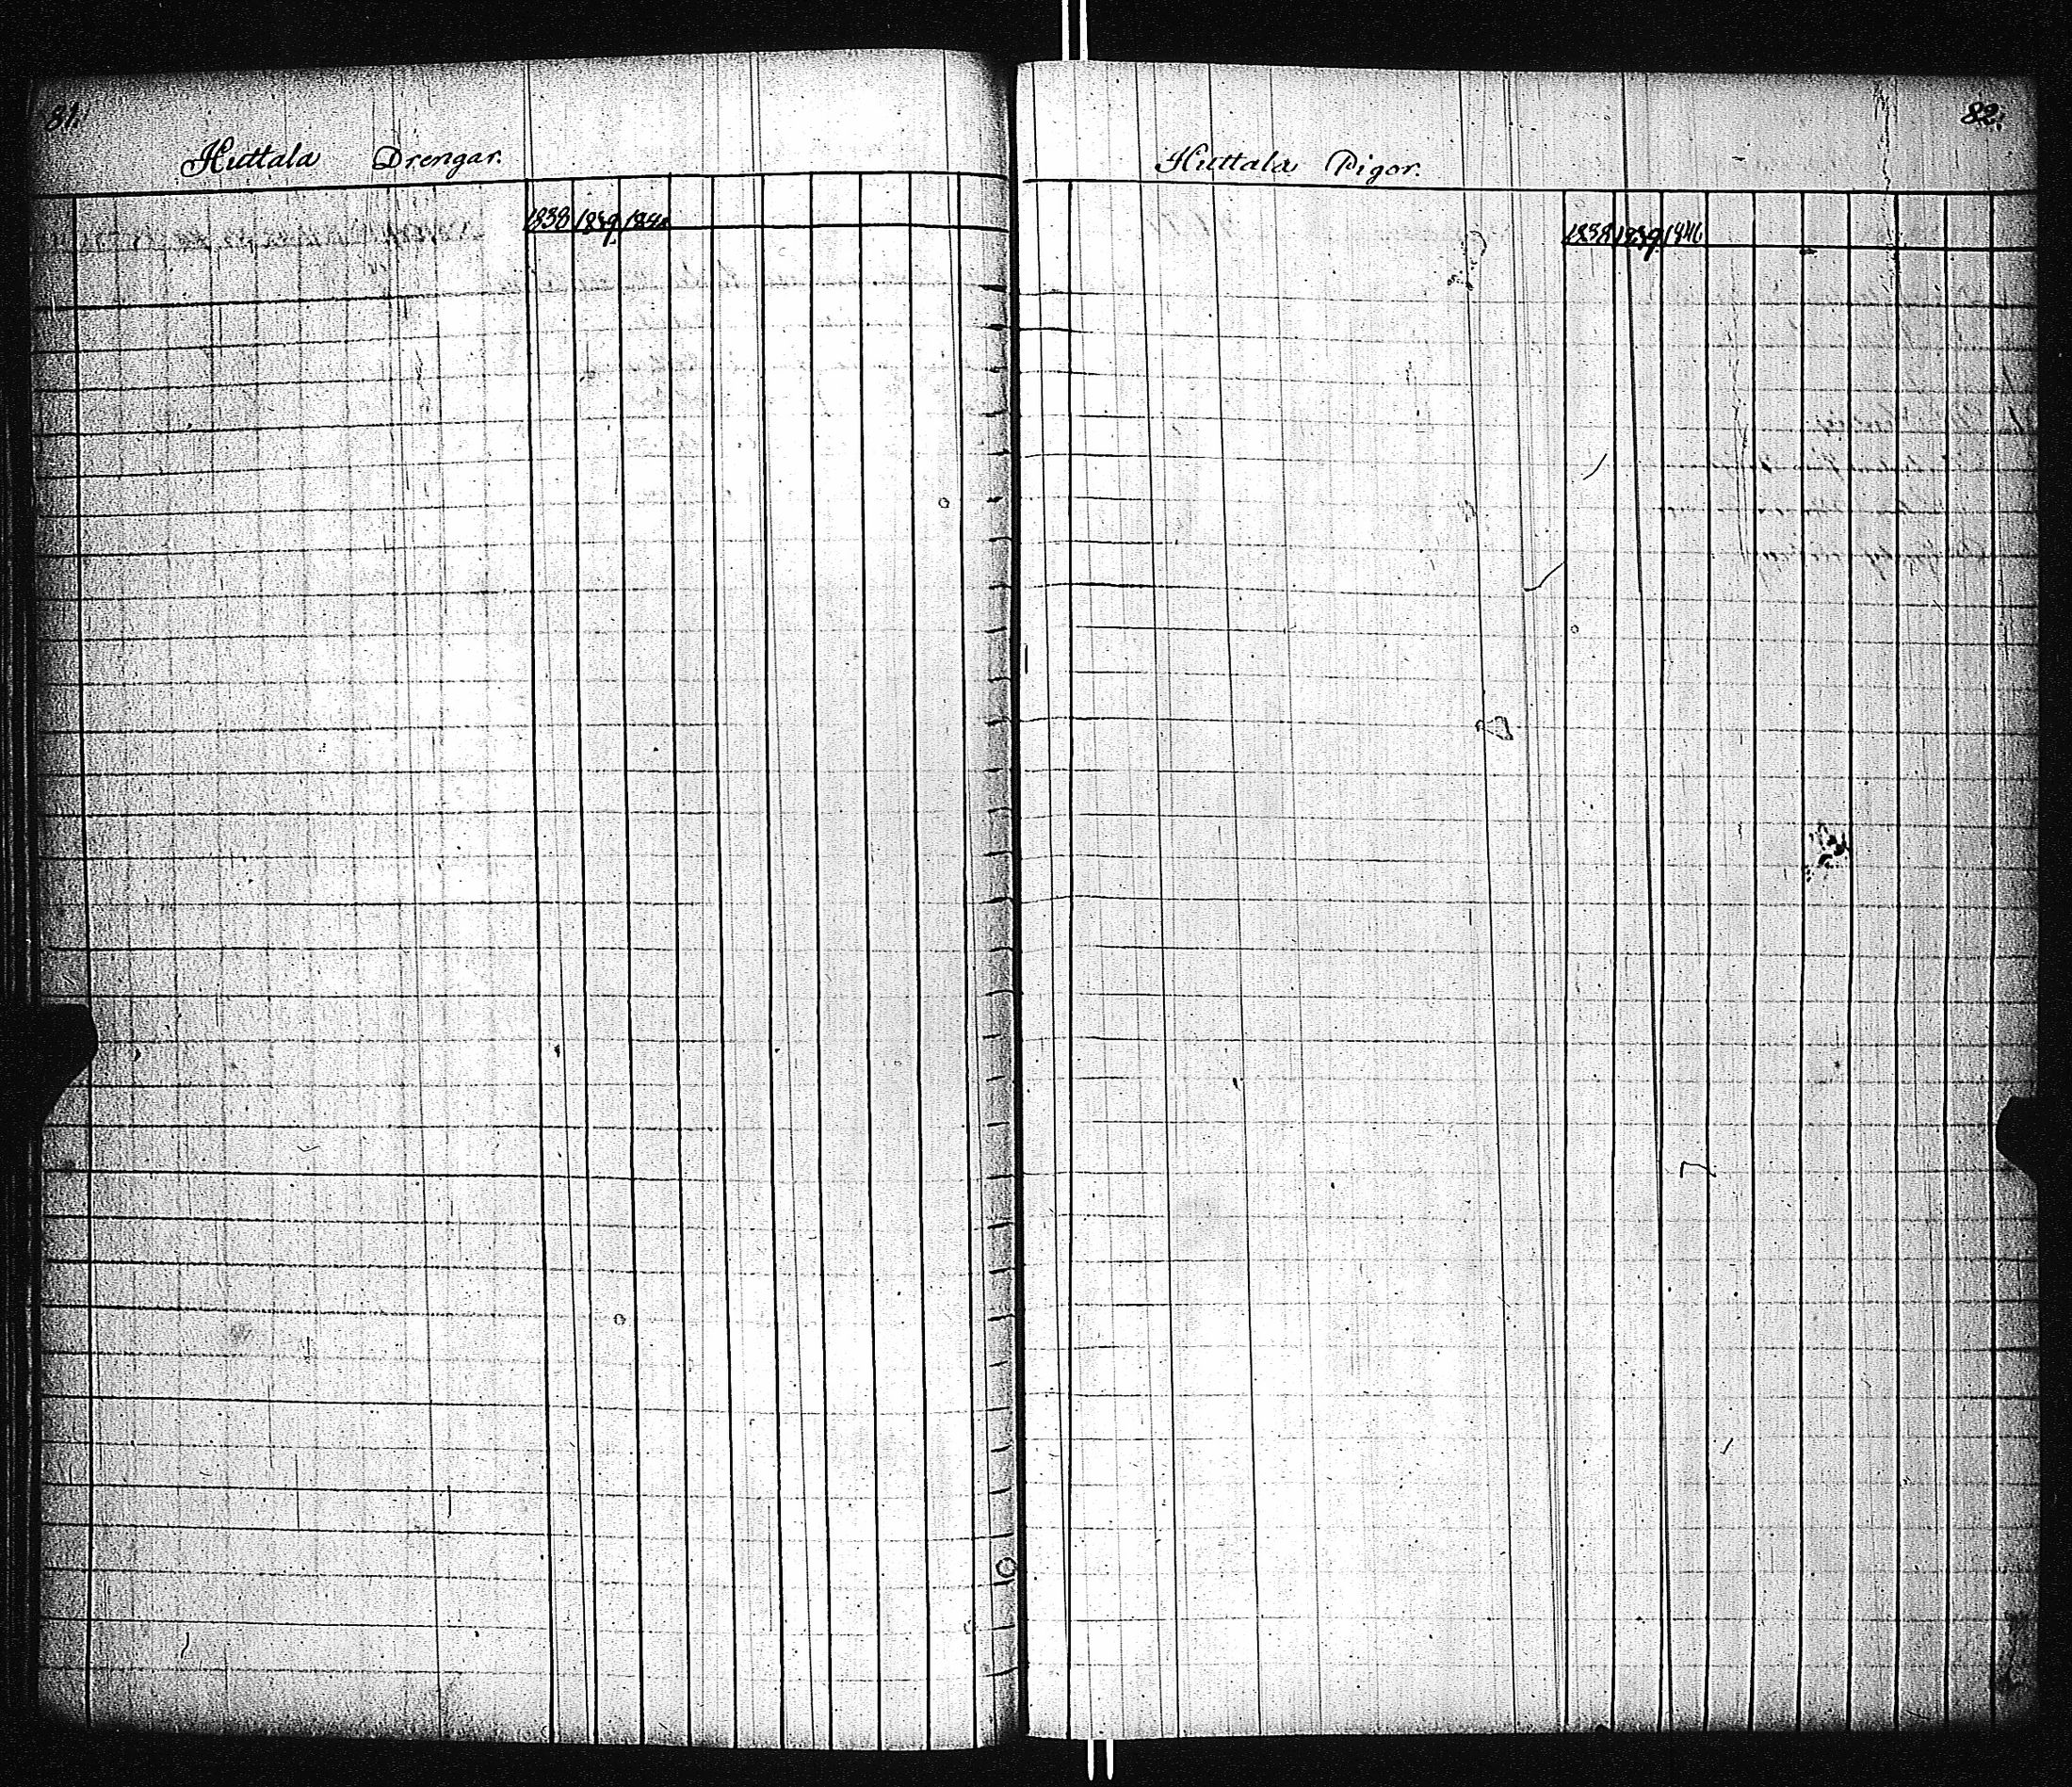 81.
Huttala Drengar.
1838 1839 1840
82.
Huttala Pigor.
1838 1839 1840